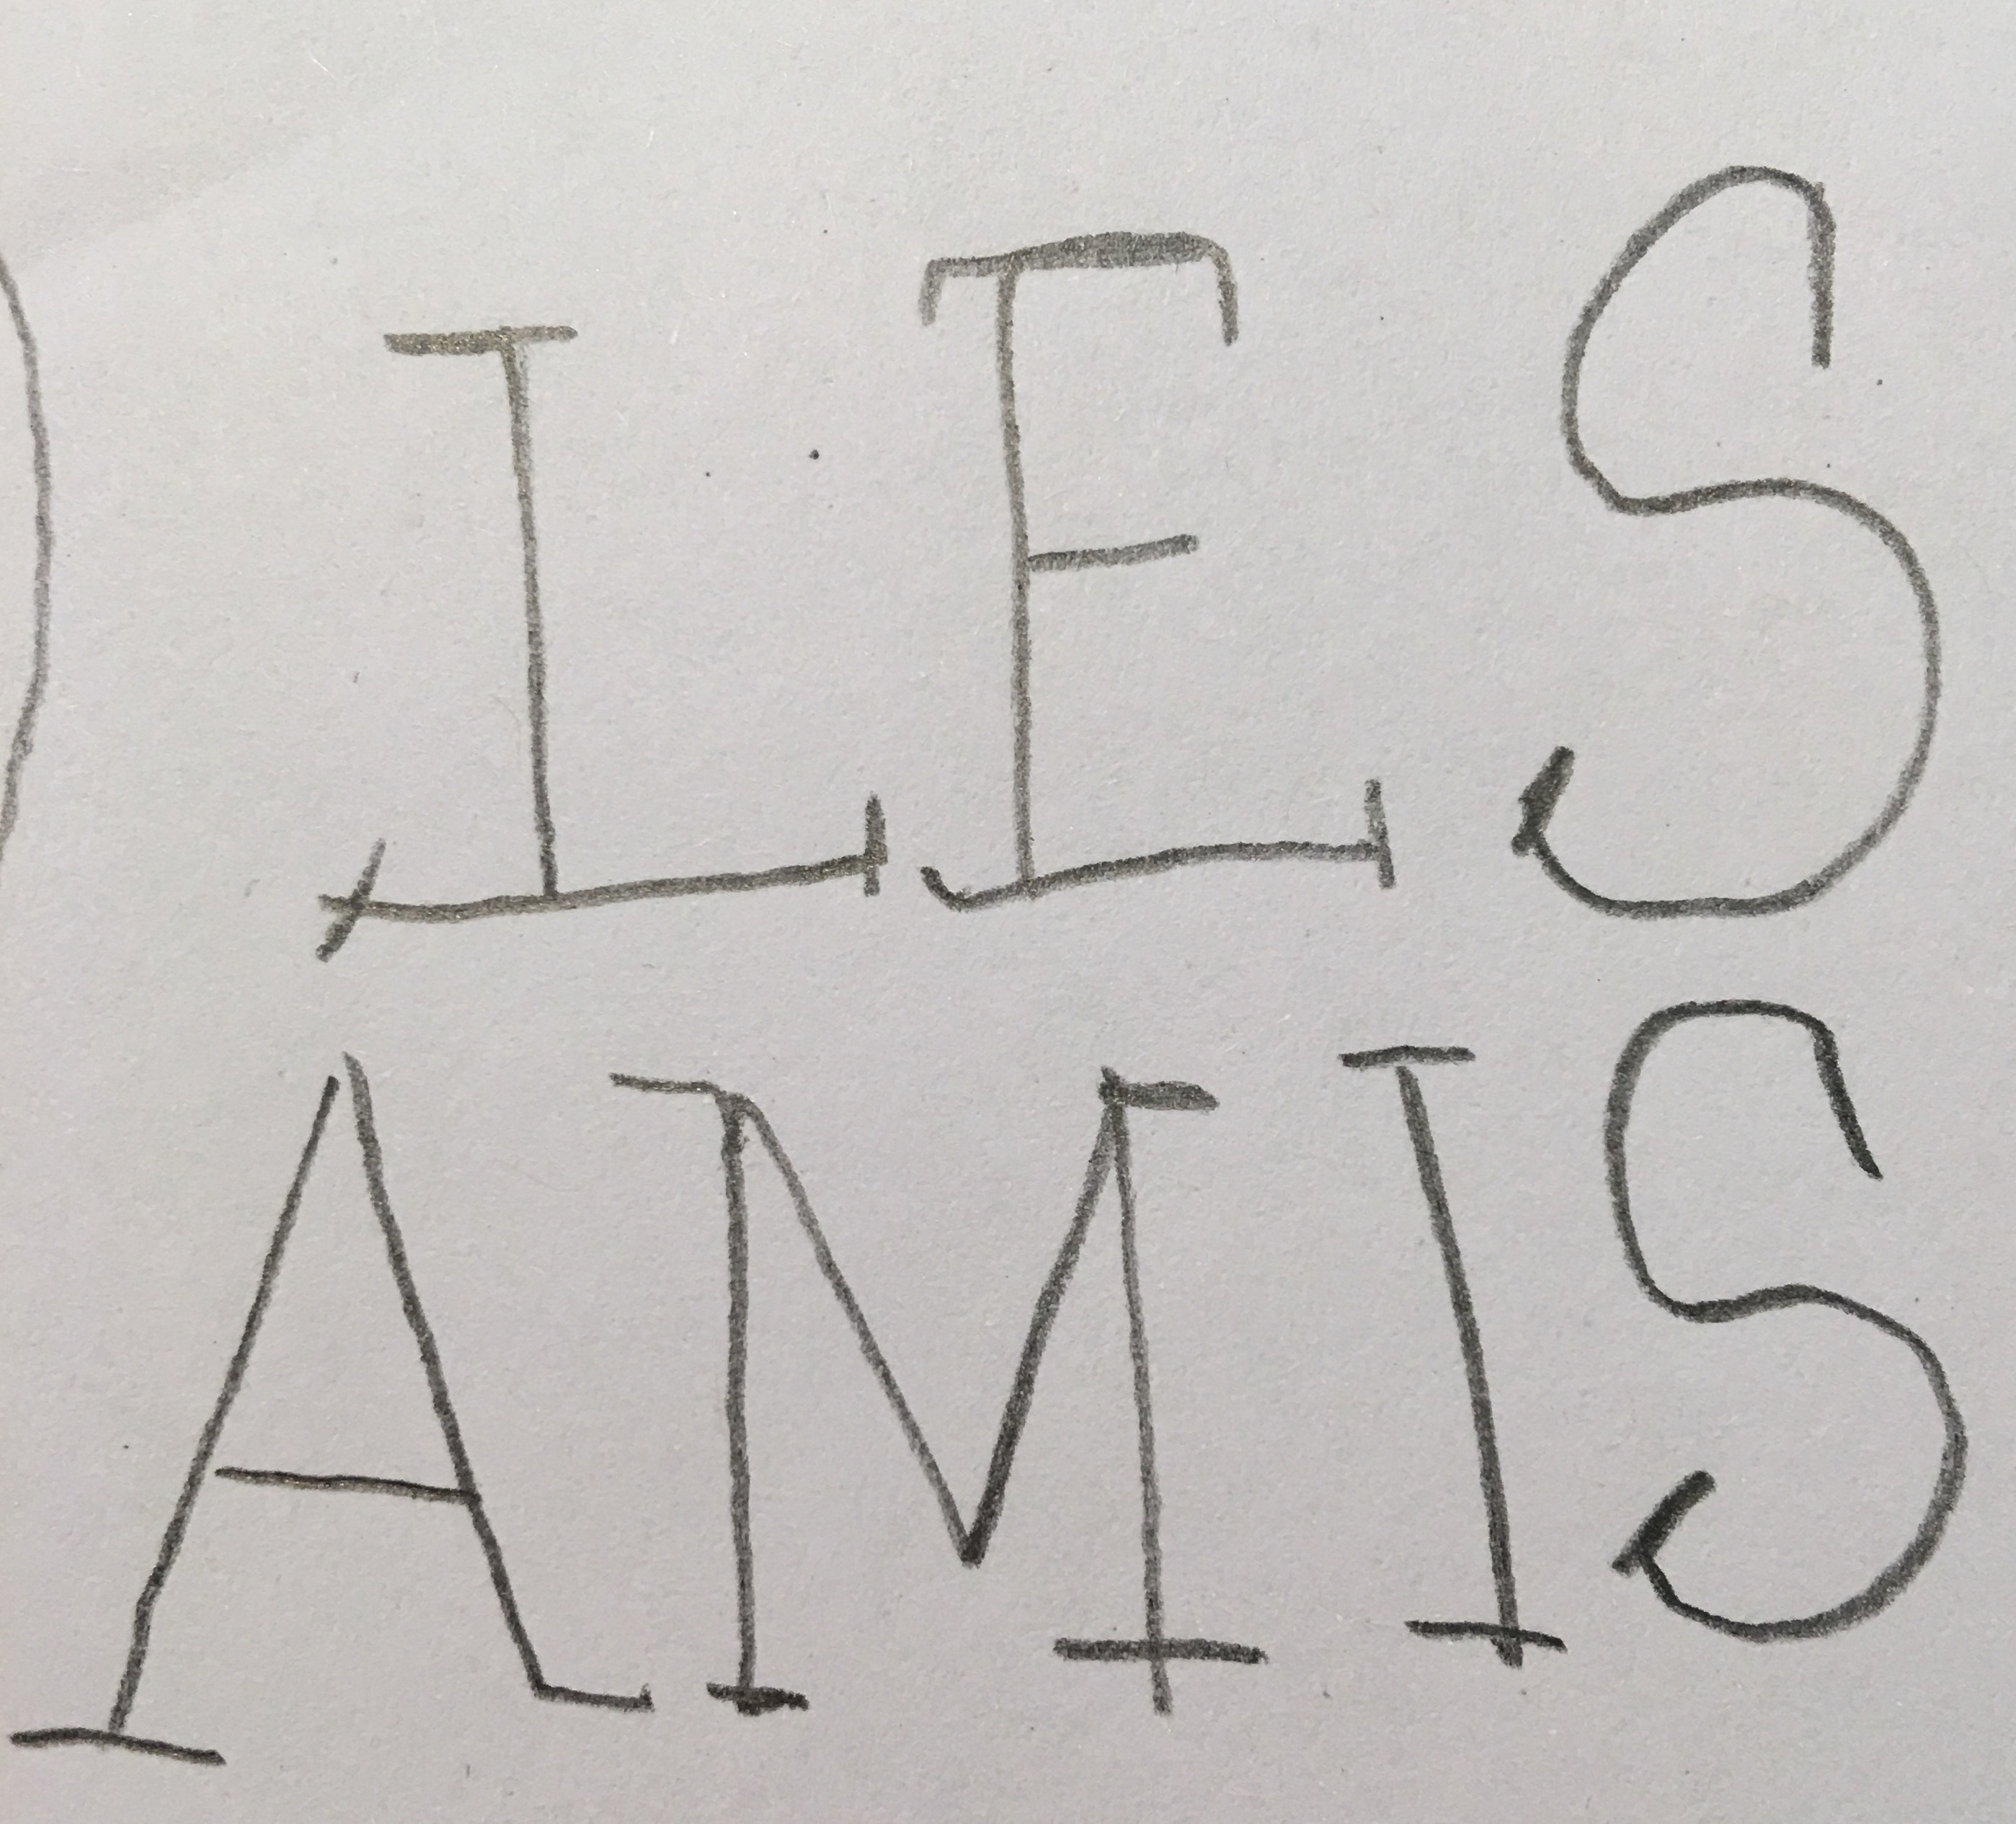 LES
AMIS